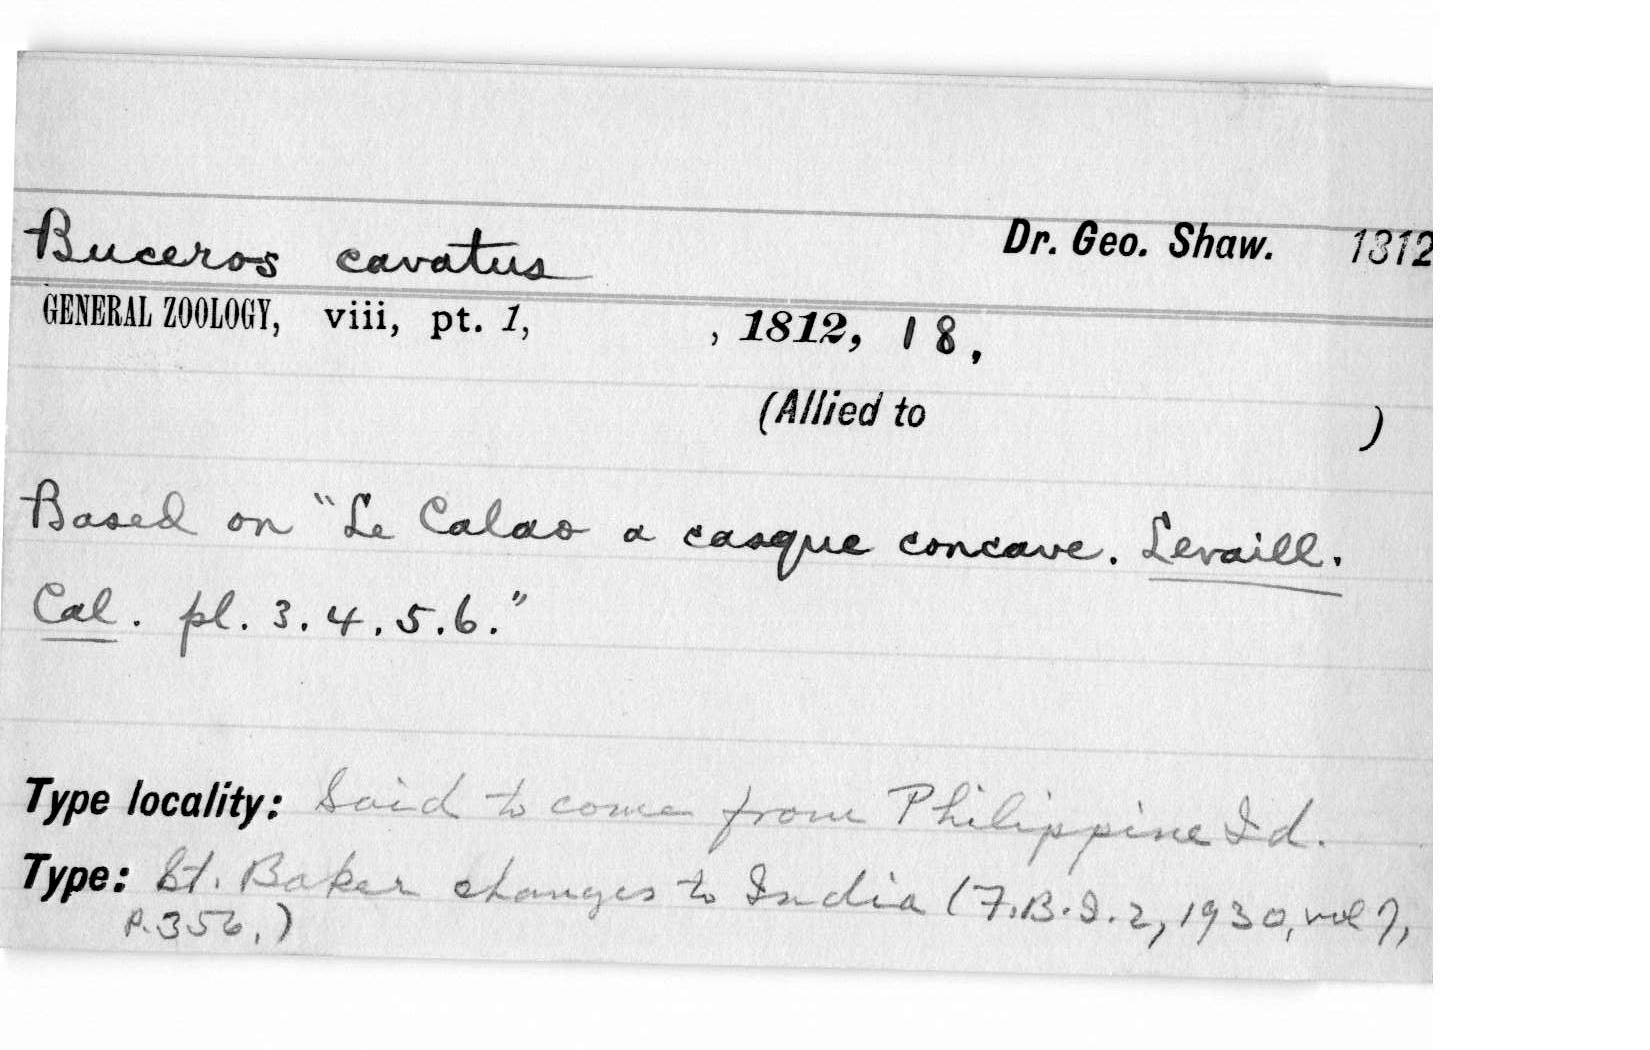 Buceros cavatus Dr. Geo. Shaw. 1812
GENERAL ZOOLOGY, viii, pt. 1, , 1812, 18,
(Allied to )
Based on "Le Calao a casque concave. Levaill.
Cal. pl. 3. 4. 5. 6."
Type locality: Said to come from Philippine Id.
Type: St. Baker changes to India (F.B.I. 2, 1930, vol 7,
p. 356.)